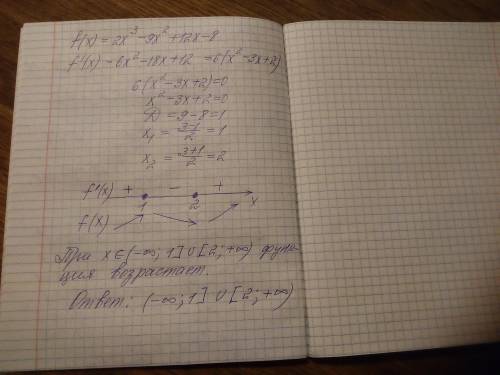 f(x) = 2x³-9x²+12x-8
f'(x) = 6x²-18x+12 = 6(x²-3x+2)
6(x²-3x+2)=0
x²-3x+2=0
D = 9-8=1
x₁ = (3-1)/2 = 1
x₂ = (3+1)/2 = 2
f'(x) + - +
1 2 x
f(x)
При x∈(-∞; 1] ∪ [2; +∞) функ-
ция возрастает.
Ответ: (-∞; 1] ∪ [2; +∞)